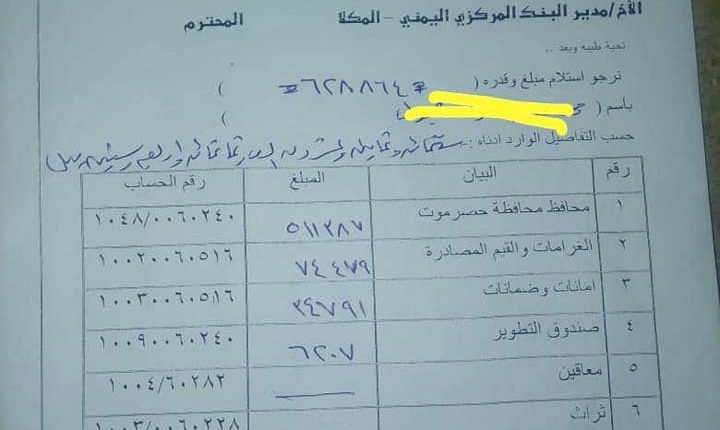 الأخ/مدير البنك المركزي اليمني – المكلا المحترم
تحية طيبه وبعد ..
نرجو استلام مبلغ وقدره ( #٦٢٨٨٦٤= )
باسم ( )
حسب التفاصيل الوارد ادناه :- ستمائة وثمانية وعشرون الف وثمانمائة واربعة وستون ريال
رقم البيان المبلغ رقم الحساب
١ محافظ محافظة حضرموت ٥١١٣٨٧ ١٠٤٨/٠٠٦٠٢٤٠
٢ الغرامات والقيم المصادرة ٧٤٤٧٩ ١٠٠٢٠٠٦٠٥١٦
٣ امانات وضمانات ٣٦٧٩١ ١٠٠٣٠٠٦٠٥١٦
٤ صندوق التطوير ٦٢٠٧ ١٠٠٩٠٠٦٠٢٤٠
٥ معاقين ١٠٠٤/٦٠٢٨٢
٦ تراث ١٠٠٣/٠٠٦٠٢٢٨